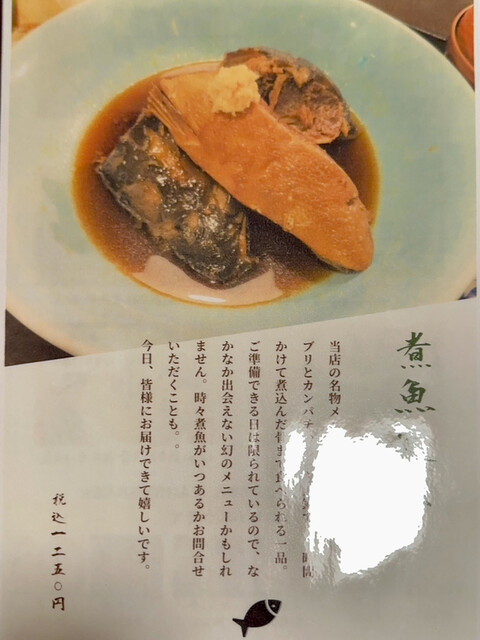 煮魚
当店の名物メ
ブリとカンパチ 時間
かけて煮込んだ骨まで食べられる一品。
ご準備できる日は限られているので、な
かなか出会えない幻のメニューかもしれ
ません。時々煮魚がいつあるかお問合せ
いただくことも。。
今日、皆様にお届けできて嬉しいです。
税込一二五〇円